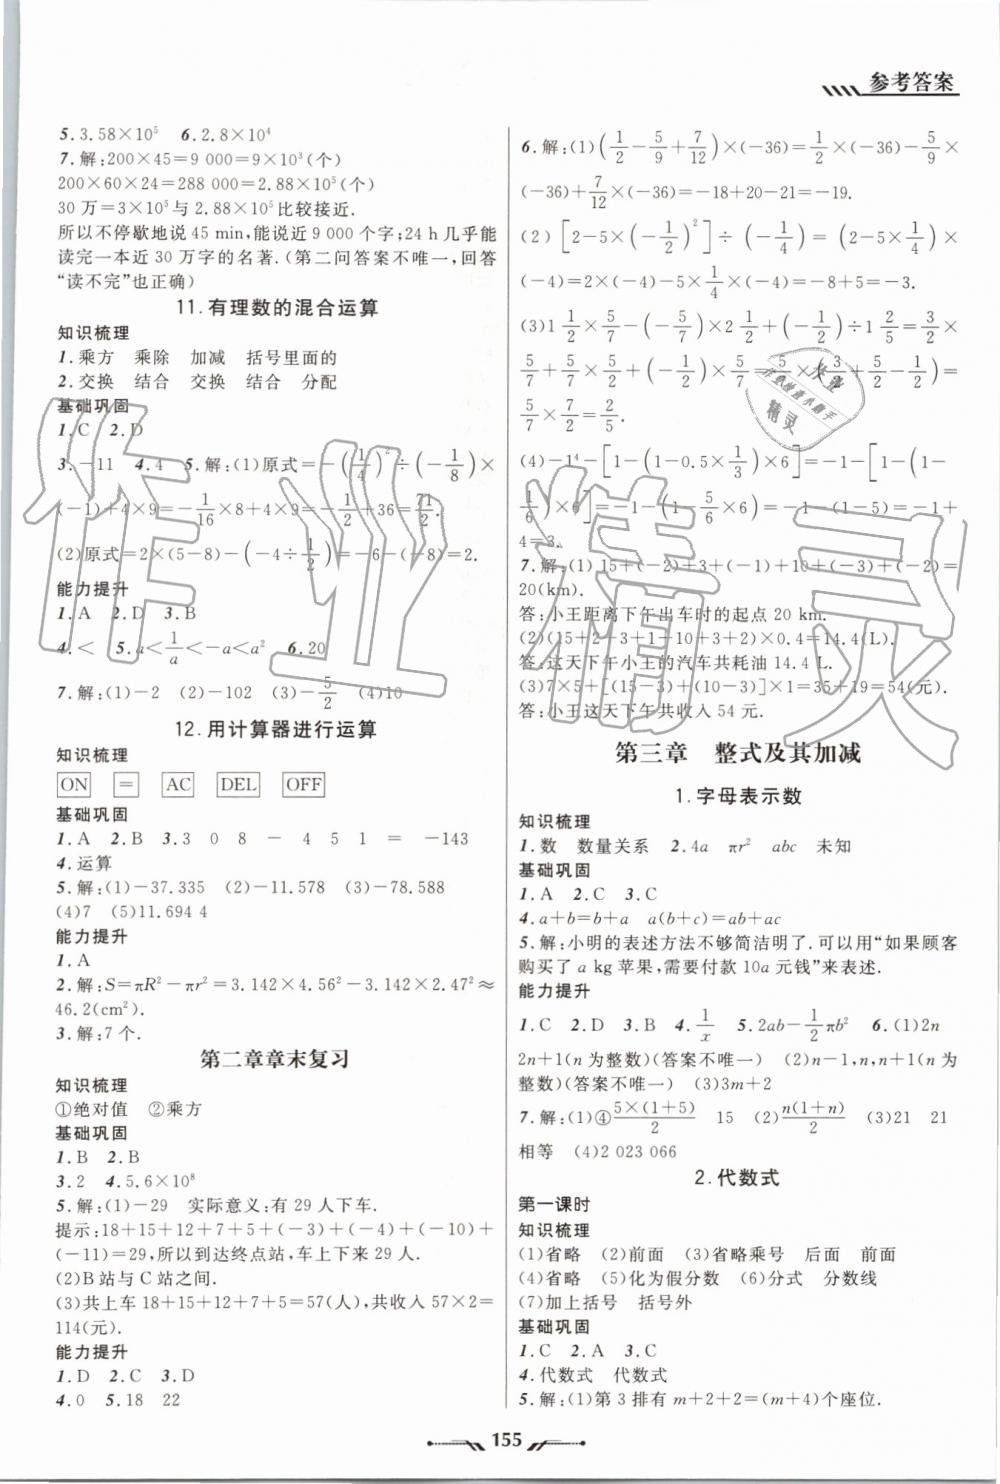 参考答案
5.3.58×10⁵ 6.2.8×10⁴
7.解:200×45=9 000=9×10³(个)
200×60×24=288 000=2.88×10⁵(个)
30万=3×10⁵与2.88×10⁵比较接近.
所以不停歇地说45 min,能说近9 000个字;24 h几乎能
读完一本近30万字的名著.(第二问答案不唯一,回答
“读不完”也正确)
11.有理数的混合运算
知识梳理
1.乘方 乘除 加减 括号里面的
2.交换 结合 交换 结合 分配
基础巩固
1.C 2.D
3.-11 4.4 5.解:(1)原式=-(1/4)²÷(-1/8)×
(-1)+4×9=-1/16×8+4×9=-1/2+36=71/2.
(2)原式=2×(5-8)-(-4÷1/2)=-6-(-8)=2.
能力提升
1.A 2.D 3.B
4.< 5.a<1/a<-a<a² 6.20
7.解:(1)-2 (2)-102 (3)-5/2 (4)10
12.用计算器进行运算
知识梳理
ON = AC DEL OFF
基础巩固
1.A 2.B 3.3 0 8 - 4 5 1 = -143
4.运算
5.解:(1)-37.335 (2)-11.578 (3)-78.588
(4)7 (5)11.694 4
能力提升
1.A
2.解:S=πR²-πr²=3.142×4.56²-3.142×2.47²≈
46.2(cm²).
3.解:7个.
第二章章末复习
知识梳理
①绝对值 ②乘方
基础巩固
1.B 2.B
3.2 4.5.6×10⁸
5.解:(1)-29 实际意义:有29人下车.
提示:18+15+12+7+5+(-3)+(-4)+(-10)+
(-11)=29,所以到达终点站,车上下来29人.
(2)B站与C站之间.
(3)共上车18+15+12+7+5=57(人),共收入57×2=
114(元).
能力提升
1.D 2.C 3.D
4.0 5.18 22
6.解:(1)(1/2-5/9+7/12)×(-36)=1/2×(-36)-5/9×
(-36)+7/12×(-36)=-18+20-21=-19.
(2)[2-5×(-1/2)²]÷(-1/4)=(2-5×1/4)×
(-4)=2×(-4)-5×1/4×(-4)=-8+5=-3.
(3)1 1/2×5/7-(-5/7)×2 1/2+(-1/2)÷1 2/5=3/2×
5/7+5/7×5/2+(-1/2)×5/7=5/7×(3/2+5/2-1/2)=
5/7×7/2=5/2.
(4)-1⁴-[1-(1-0.5×1/3)×6]=-1-[1-(1-
1/6)×6]=-1-(1-5/6×6)=-1-(1-5)=-1+
4=3.
7.解:(1)15+(-2)+3+(-1)+10+(-3)+(-2)=
20(km).
答:小王距离下午出车时的起点20 km.
(2)(15+2+3+1+10+3+2)×0.4=14.4(L).
答:这天下午小王的汽车共耗油14.4 L.
(3)7×5+[(15-3)+(10-3)]×1=35+19=54(元).
答:小王这天下午共收入54元.
第三章 整式及其加减
1.字母表示数
知识梳理
1.数 数量关系 2.4a πr² abc 未知
基础巩固
1.A 2.C 3.C
4.a+b=b+a a(b+c)=ab+ac
5.解:小明的表述方法不够简洁明了.可以用“如果顾客
购买了a kg苹果,需要付款10a元钱”来表述.
能力提升
1.C 2.D 3.B 4.1/x 5.2ab-1/2πb² 6.(1)2n
2n+1(n为整数)(答案不唯一) (2)n-1,n,n+1(n为
整数)(答案不唯一) (3)3m+2
7.解:(1)④5×(1+5)/2 15 (2)n(1+n)/2 (3)21 21
相等 (4)2 023 066
2.代数式
第一课时
知识梳理
(1)省略 (2)前面 (3)省略乘号 后面 前面
(4)省略 (5)化为假分数 (6)分式 分数线
(7)加上括号 括号外
基础巩固
1.C 2.A 3.C
4.代数式 代数式
5.解:(1)第3排有m+2+2=(m+4)个座位.
155
作业精灵